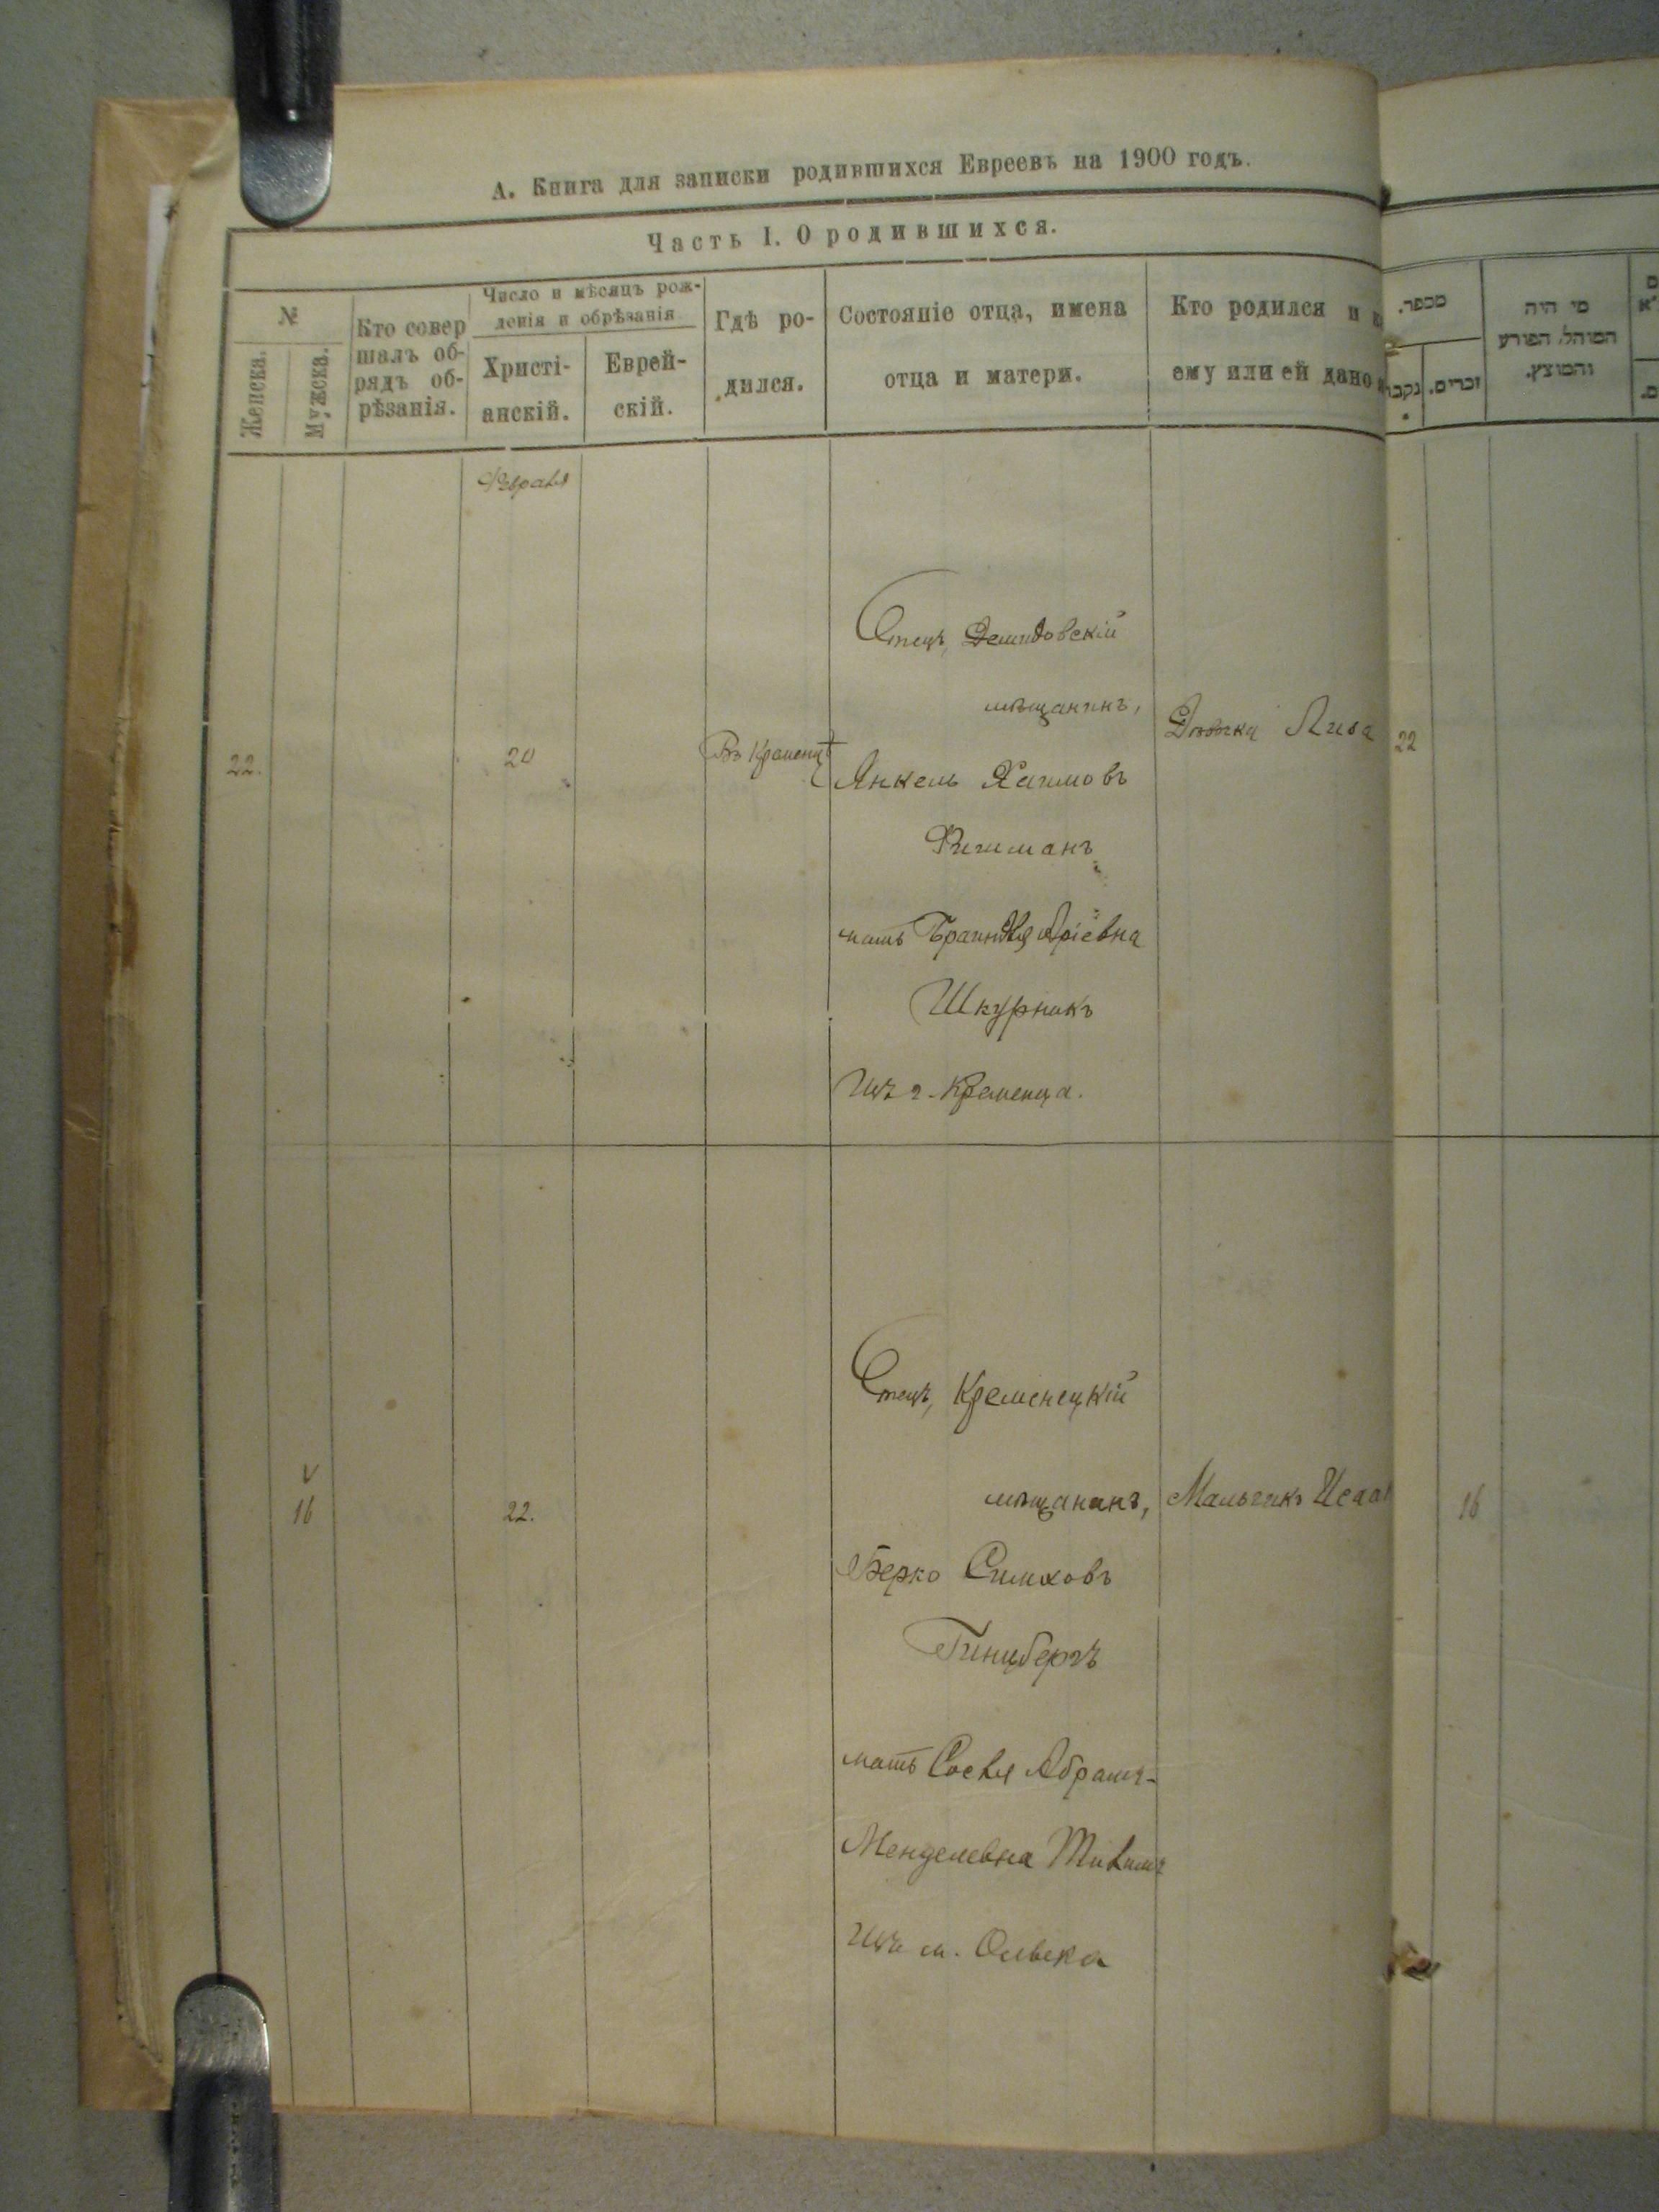 А. Книга для записки родившихся Евреевъ на 1900 годъ.
Часть I. О родившихся.
№
Женска.
Мужска.
Кто совер
шалъ об-
рядъ об-
рѣзанія.
Число и мѣсяцъ рож-
денія и обрѣзанія
Христі-
анскій.
Еврей-
скій.
Гдѣ ро-
дился.
Состояніе отца, имена
отца и матери.
Кто родился и
ему или ей дано
מספר.
זכרים.
מי היה
המוהל, הפורע
והמוצץ.
Февраля
22.
20
Въ Кременцѣ
Отецъ, Демидовскій
мѣщанинъ,
Янкель Хаимовъ
Фишманъ
мать Браиндля Аріевна
Шкурникъ
Изъ г. Кременца.
Дѣвочка Либа
22
16
22.
Отецъ, Кременецкій
мѣщанинъ,
Берко Симховъ
Гинцбергъ
мать Сосля Абрамъ-
Менделевна
Изъ м. Олыка
Мальчикъ
16